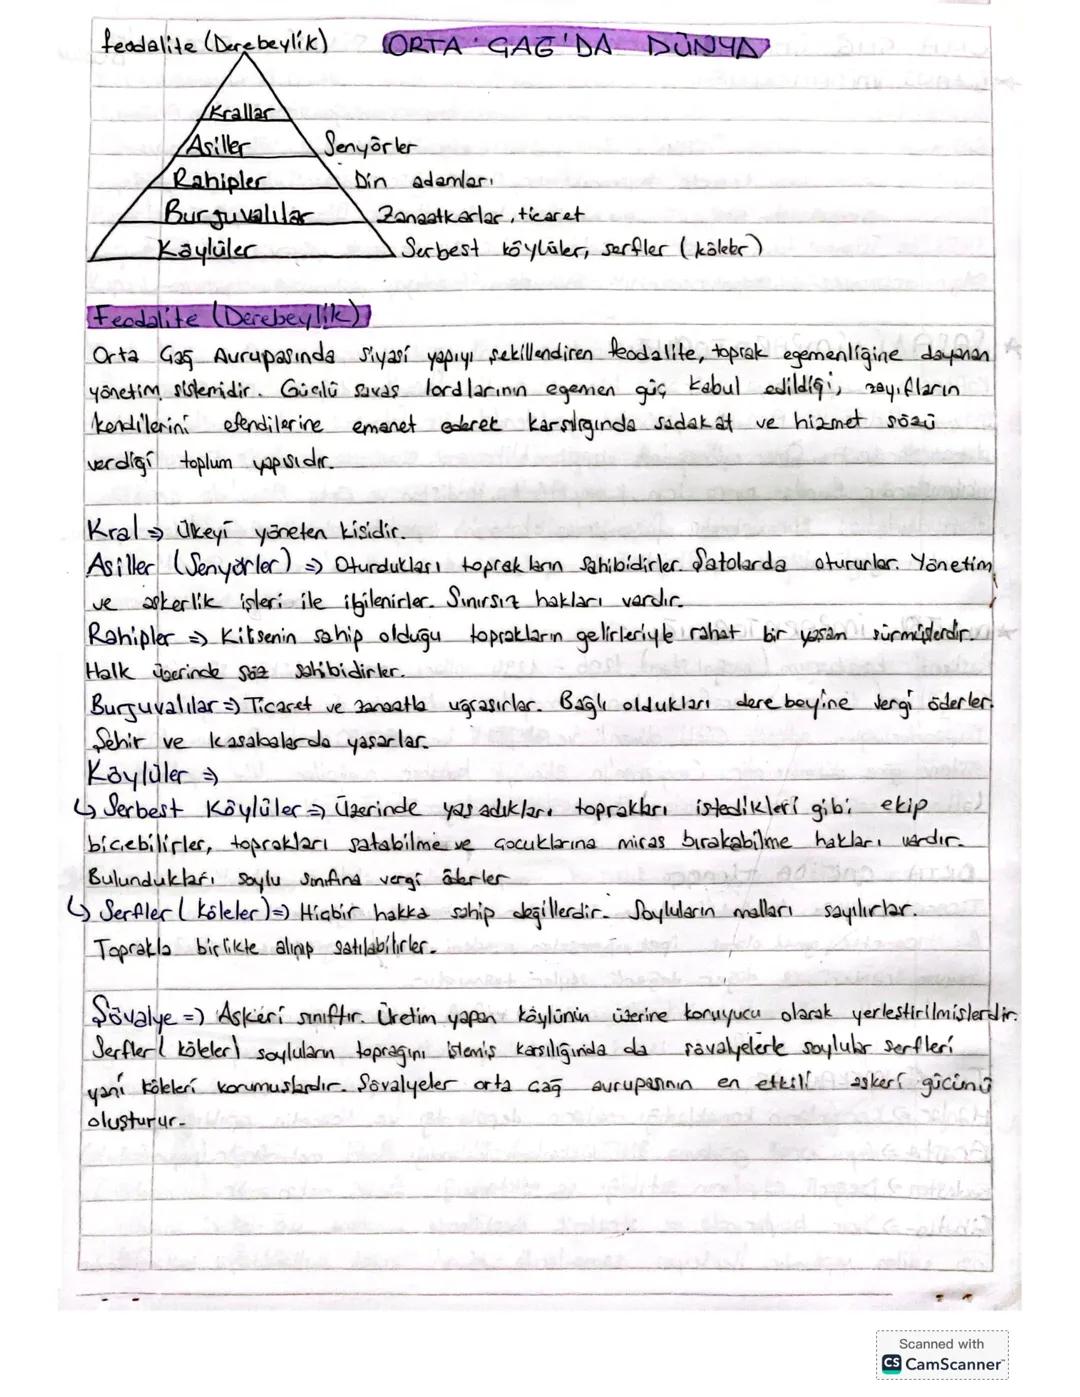 feodalite (Derebeylik)
ORTA ÇAĞ'DA DÜNYA
Krallar
Asiller Senyörler
Rahipler Din adamları
Burjuvalılar Zanaatkarlar, ticaret
Köylüler Serbest köylüler, serfler (köleler)
Feodalite (Derebeylik)
Orta Çağ Avrupasında siyasi yapıyı şekillendiren feodalite, toprak egemenliğine dayanan
yönetim sistemidir. Güçlü savaş lordlarının egemen güç kabul edildiği, zayıfların
kendilerini efendilerine emanet ederek karşılığında sadakat ve hizmet sözü
verdiği toplum yapısıdır.
Kral => Ülkeyi yöneten kişidir.
Asiller (Senyörler) => Oturdukları toprakların sahibidirler. Şatolarda otururlar. Yönetim
ve askerlik işleri ile ilgilenirler. Sınırsız hakları vardır.
Rahipler => Kilisenin sahip olduğu toprakların gelirleriyle rahat bir yaşam sürmüşlerdir.
Halk üzerinde söz sahibidirler.
Burjuvalılar => Ticaret ve zanaatla uğraşırlar. Bağlı oldukları derebeyine vergi öderler.
Şehir ve kasabalarda yaşarlar.
Köylüler =>
↳ Serbest Köylüler => Üzerinde yaşadıkları toprakları istedikleri gibi ekip
biçebilirler, toprakları satabilme ve çocuklarına miras bırakabilme hakları vardır.
Bulundukları soylu sınıfına vergi öderler
↳ Serfler (köleler) => Hiçbir hakka sahip değillerdir. Soyluların malları sayılırlar.
Toprakla birlikte alınıp satılabilirler.
Şövalye => Askeri sınıftır. Üretim yapan köylünün üzerine koruyucu olarak yerleştirilmişlerdir.
Serfler (köleler) soyluların toprağını işlemiş karşılığında da şövalyelerle soylular serfleri
yani köleleri korumuşlardır. Şövalyeler orta çağ avrupasının en etkili askeri gücünü
oluşturur.
Scanned with
CS CamScanner